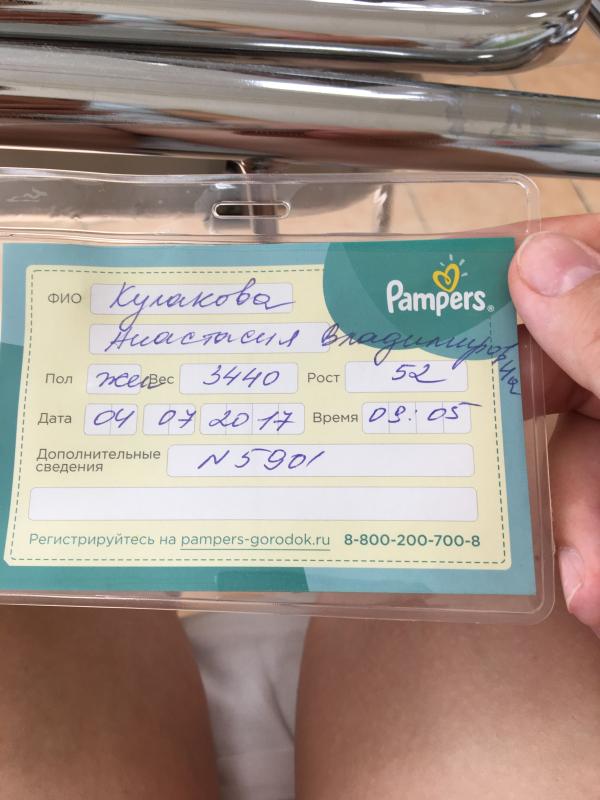 Pampers®
ФИО Кулакова
Анастасия Владимировна
Пол жен Вес 3440 Рост 52
Дата 04 07 2017 Время 09:05
Дополнительные
сведения N 5901
Регистрируйтесь на pampers-gorodok.ru 8-800-200-700-8